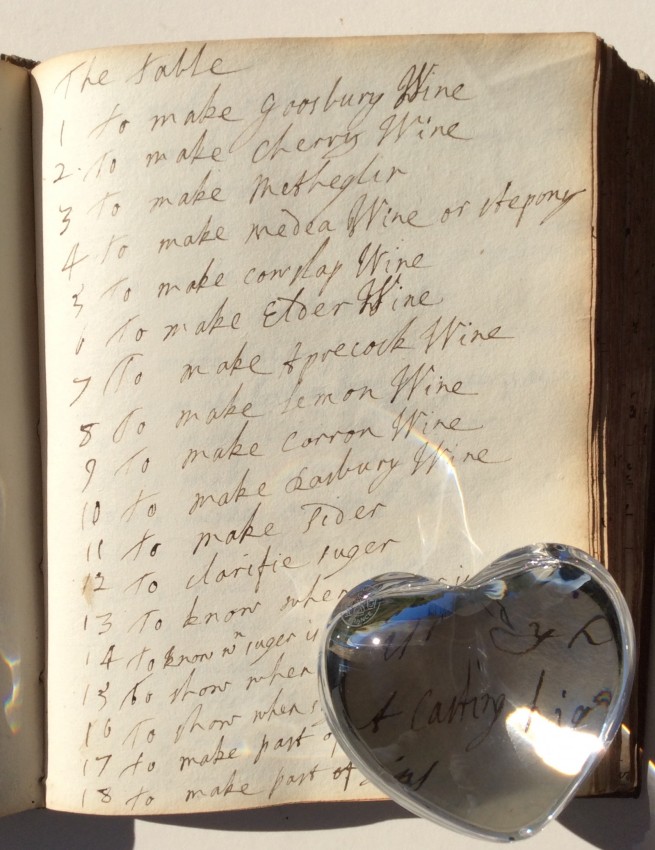 The table
1 To make Goosbury Wine
2. To make Cherry Wine
3 To make Metheglin
4 To make medea Wine or stepony
5 To make cowslap Wine
6 To make Elder Wine
7 To make Aprecock Wine
8 To make lemon Wine
9 To make corron Wine
10 To make Rasbury Wine
11 To make sider
12 To clarifie suger
13 To know when
14 To know wn suger is
15 To show when
16 To show when
17 To make past of
18 To make past of